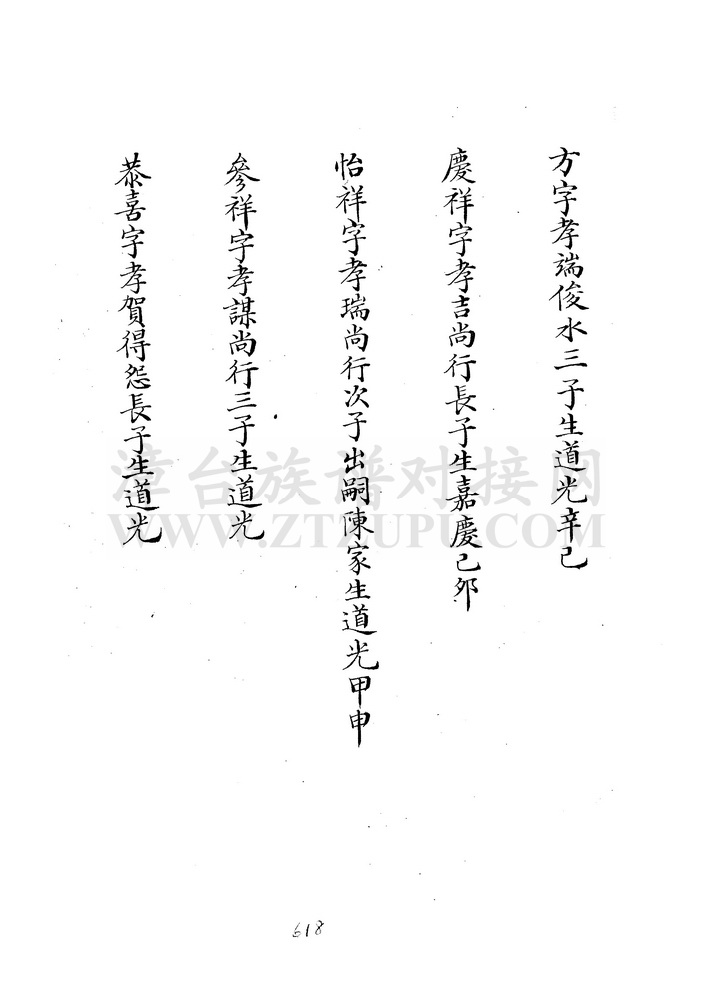 方字孝端俊水三子生道光辛巳
慶祥字孝吉尚行長子生嘉慶己卯
怡祥字孝瑞尚行次子出嗣陳家生道光甲申
參祥字孝謀尚行三子生道光
恭喜字孝賀得怨長子生道光
漳台族谱对接网
WWW.ZTZUPU.COM
618